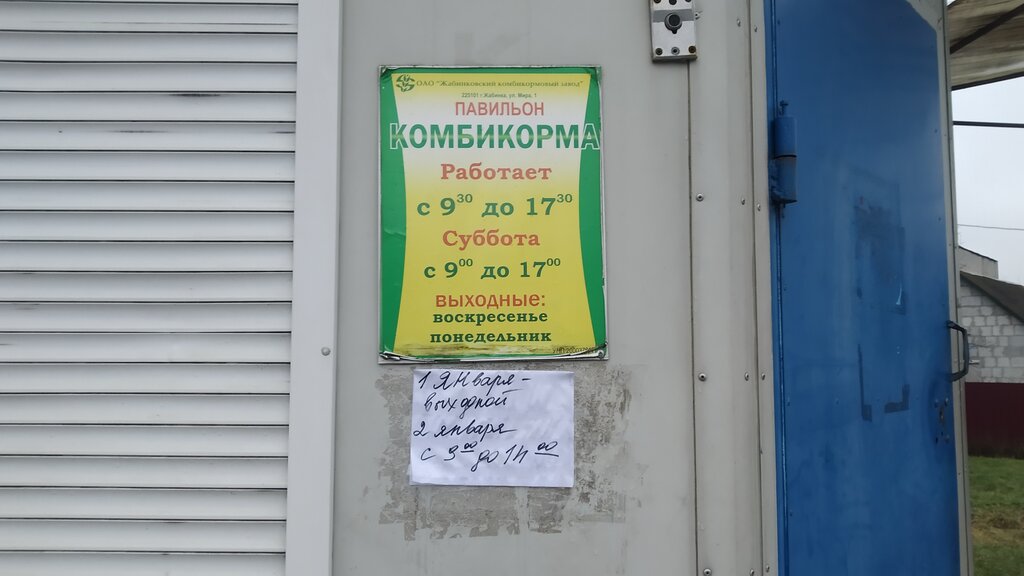 ОАО "Жабинковский комбикормовый завод"
225101 г.Жабинка, ул. Мира, 1
ПАВИЛЬОН
КОМБИКОРМА
Работает
с 9 30 до 17 30
Суббота
с 9 00 до 17 00
выходные:
воскресенье
понедельник
1 января -
выходной
2 января
с 9 00 до 14 00